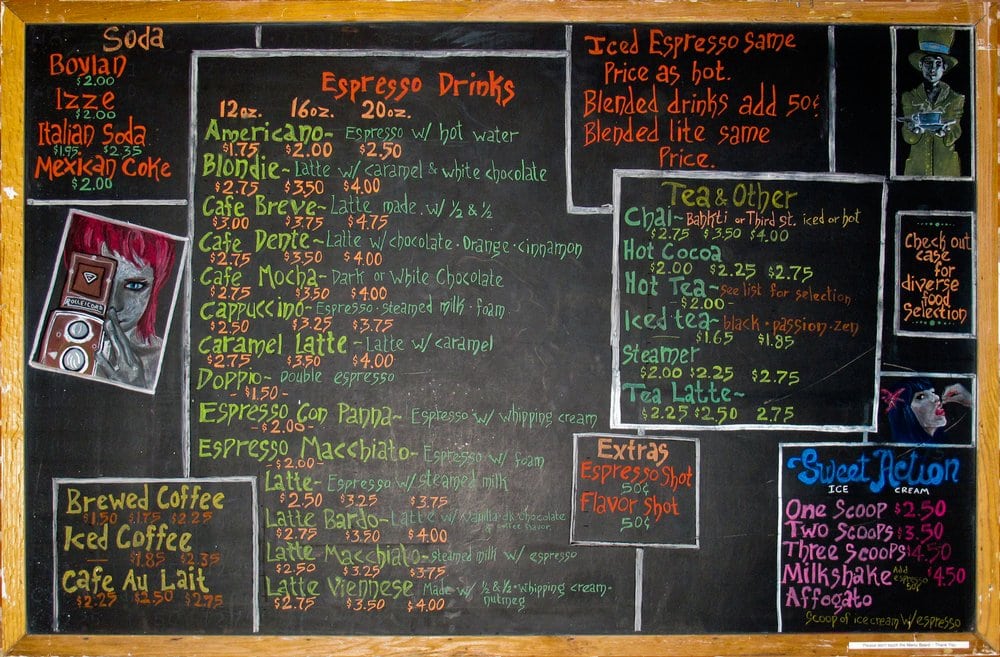 Soda
Boylan
$2.00
Izze
$2.00
Italian Soda
$1.95 $2.35
Mexican Coke
$2.00
ROLLEICORD
Espresso Drinks
12oz. 16oz. 20oz.
Americano- Espresso w/ hot water
$1.75 $2.00 $2.50
Blondie~ Latte w/ caramel & white chocolate
$2.75 $3.50 $4.00
Cafe Breve~ Latte made w/ ½ & ½
$3.00 $3.75 $4.75
Cafe Dente~ Latte w/ chocolate · Orange · cinnamon
$2.75 $3.50 $4.00
Cafe Mocha- Dark or White Chocolate
$2.75 $3.50 $4.00
Cappuccino- Espresso · steamed milk · foam
$2.50 $3.25 $3.75
Caramel Latte ~ Latte w/ caramel
$2.75 $3.50 $4.00
Doppio- Double espresso
- $1.50 -
Espresso Con Panna~ Espresso w/ whipping cream
-$2.00-
Espresso Macchiato- Espresso w/ foam
-$2.00-
Latte- Espresso w/ steamed milk
$2.50 $3.25 $3.75
Latte Bardo~ Latte w/ vanilla dk chocolate
& coffee flavor
$2.75 $3.50 $4.00
Latte Macchiato-steamed milk w/ espresso
$2.50 $3.25 $3.75
Latte Viennese Made w/ ½ & ½ · whipping cream ·
nutmeg
$2.75 $3.50 $4.00
Brewed Coffee
$1.50 $1.75 $2.25
Iced Coffee
$1.85 $2.35
Cafe Au Lait
$2.25 $2.50 $2.75
Iced Espresso same
Price as hot.
Blended drinks add 50¢
Blended lite same
Price.
Tea & Other
Chai~ Bahkti or Third St. iced or hot
$2.75 $3.50 $4.00
Hot Cocoa
$2.00 $2.25 $2.75
Hot Tea~ see list for selection
-$2.00-
Iced tea~ black · passion · zen
$1.65 $1.85
Steamer
$2.00 $2.25 $2.75
Tea Latte~
$2.25 $2.50 2.75
Extras
Espresso Shot
50¢
Flavor Shot
50¢
Check out
case
for
diverse
food
Selection
Sweet Action
ICE CREAM
One Scoop $2.50
Two Scoops $3.50
Three Scoops $4.50
Milkshake Add espresso 50¢ $4.50
Affogato
Scoop of ice cream w/ espresso
Please don't touch the Menu Board. Thank You